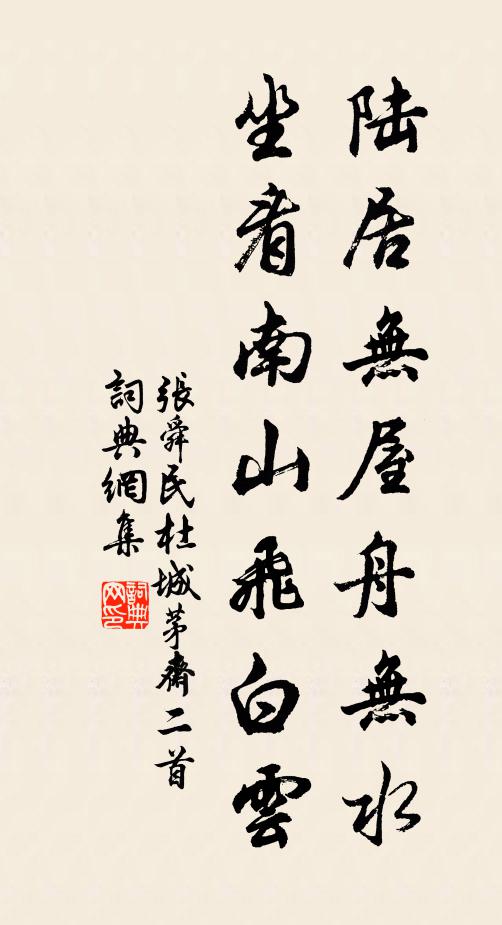 陆居無屋舟無水
坐看南山飛白雲
張舜民杜城茅齋二首
詞典網集
詞典網印